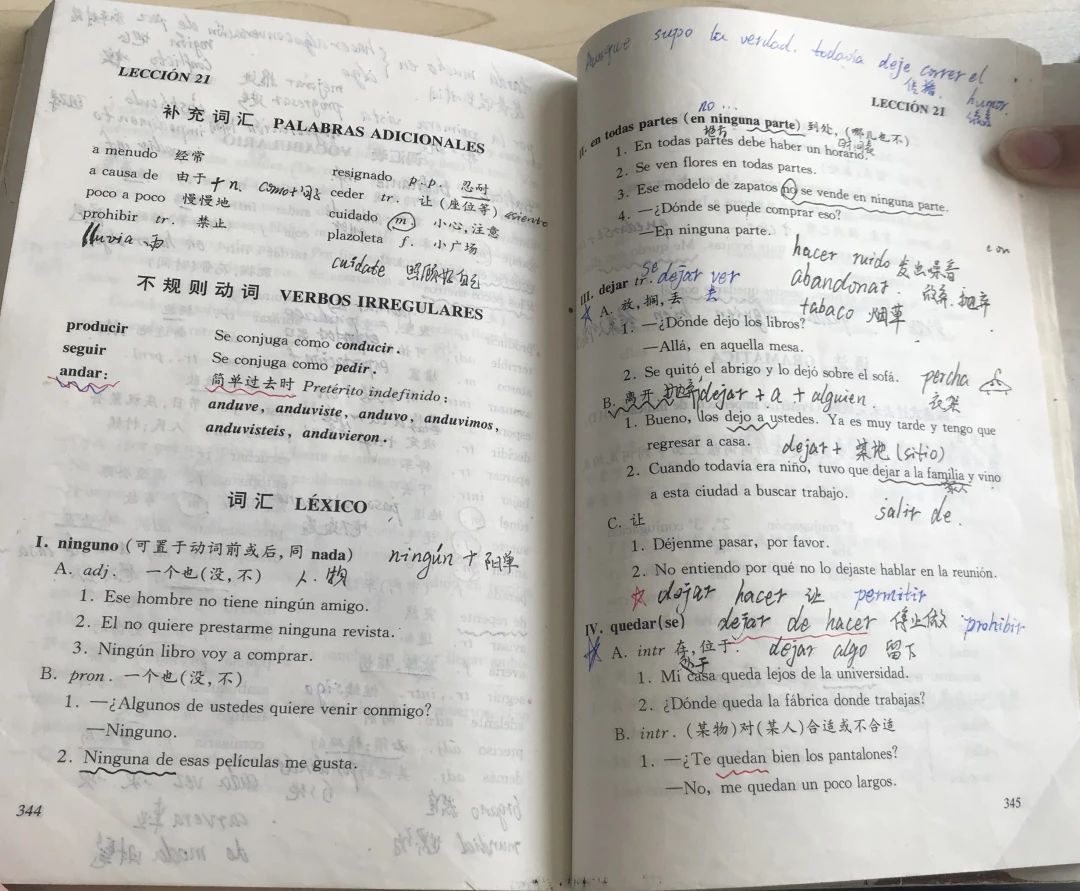 LECCIÓN 21
补充词汇 PALABRAS ADICIONALES
a menudo 经常
a causa de 由于 + n. como + 句子
poco a poco 慢慢地
prohibir tr. 禁止
lluvia 雨
resignado p.p. 忍耐
ceder tr. 让(座位等) asiento
cuidado m. 小心,注意
plazoleta f. 小广场
cuídate 照顾好自己
不规则动词 VERBOS IRREGULARES
producir Se conjuga como conducir.
seguir Se conjuga como pedir.
andar: 简单过去时 Pretérito indefinido:
anduve, anduviste, anduvo, anduvimos,
anduvisteis, anduvieron.
词汇 LÉXICO
I. ninguno (可置于动词前或后,同 nada) ningún + 阳单
A. adj. 一个也(没,不) 人.物
1. Ese hombre no tiene ningún amigo.
2. El no quiere prestarme ninguna revista.
3. Ningún libro voy a comprar.
B. pron. 一个也(没,不)
1. —¿Algunos de ustedes quiere venir conmigo?
—Ninguno.
2. Ninguna de esas películas me gusta.
344
Aunque supo la verdad, todavía deje correr el
传播 humor
LECCIÓN 21
no...
II. en todas partes (en ninguna parte) 到处, (哪儿也不)
地方 时间表
1. En todas partes debe haber un horario.
2. Se ven flores en todas partes.
3. Ese modelo de zapatos no se vende en ninguna parte.
4. —¿Dónde se puede comprar eso?
—En ninguna parte.
hacer ruido 发出噪音
abandonar. 放弃.抛弃
tabaco 烟草
III. dejar tr. se dejar ver
A. 放,搁,丢 丢
1. —¿Dónde dejo los libros?
—Allá, en aquella mesa.
2. Se quitó el abrigo y lo dejó sobre el sofá.
percha 衣架
B. 离开 抛弃 dejar + a + alguien
1. Bueno, los dejo a ustedes. Ya es muy tarde y tengo que
regresar a casa. dejar + 某地 (sitio)
2. Cuando todavía era niño, tuvo que dejar a la familia y vino
家人
a esta ciudad a buscar trabajo.
salir de.
C. 让
1. Déjenme pasar, por favor.
2. No entiendo por qué no lo dejaste hablar en la reunión.
dejar hacer 让 permitir
IV. quedar(se) dejar de hacer 停止做 prohibir
A. intr 在,位于. dejar algo 留下
处于
1. Mi casa queda lejos de la universidad.
2. ¿Dónde queda la fábrica donde trabajas?
B. intr. (某物)对(某人)合适或不合适
1. —¿Te quedan bien los pantalones?
—No, me quedan un poco largos.
345